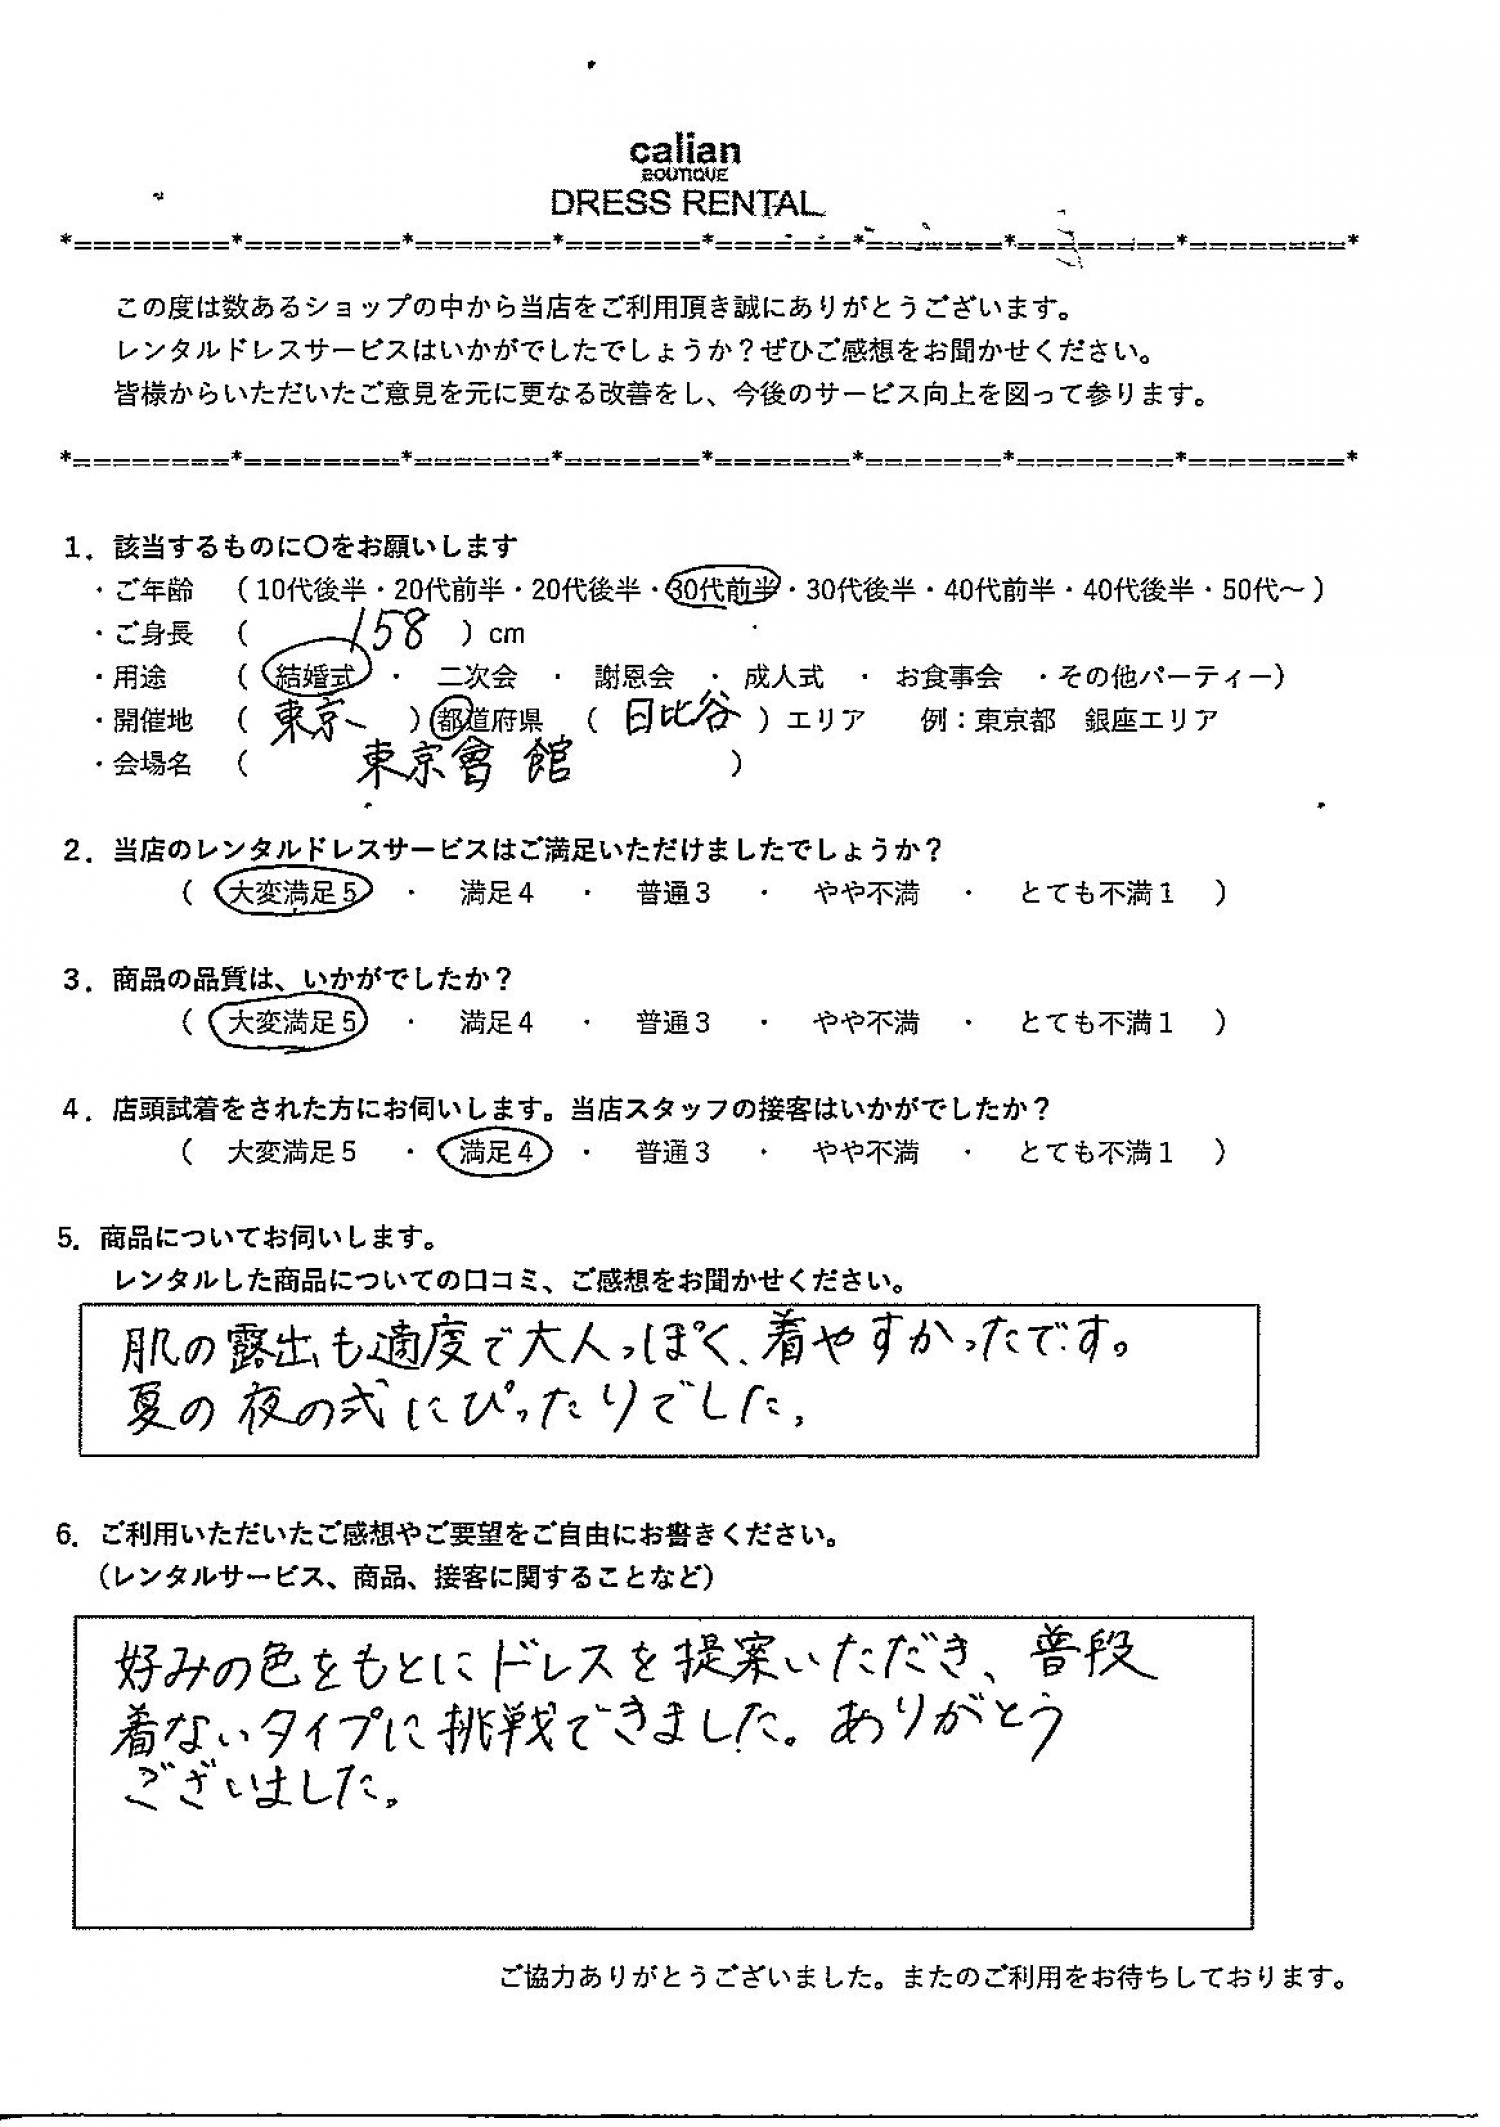 calian
BOUTIQUE
DRESS RENTAL
*========*========*=======*=======*=======*=======*========*========*
この度は数あるショップの中から当店をご利用頂き誠にありがとうございます。
レンタルドレスサービスはいかがでしたでしょうか？ぜひご感想をお聞かせください。
皆様からいただいたご意見を元に更なる改善をし、今後のサービス向上を図って参ります。
*========*========*=======*=======*=======*=======*========*========*
1．該当するものに〇をお願いします
・ご年齢 （10代後半・20代前半・20代後半・30代前半・30代後半・40代前半・40代後半・50代～）
・ご身長 （ 158 ）cm
・用途 （ 結婚式 ・ 二次会 ・ 謝恩会 ・ 成人式 ・ お食事会 ・その他パーティー）
・開催地 （ 東京 ）都道府県 （ 日比谷 ）エリア 例：東京都 銀座エリア
・会場名 （ 東京會館 ）
2．当店のレンタルドレスサービスはご満足いただけましたでしょうか？
（ 大変満足５ ・ 満足４ ・ 普通３ ・ やや不満 ・ とても不満１ ）
3．商品の品質は、いかがでしたか？
（ 大変満足５ ・ 満足４ ・ 普通３ ・ やや不満 ・ とても不満１ ）
4．店頭試着をされた方にお伺いします。当店スタッフの接客はいかがでしたか？
（ 大変満足５ ・ 満足４ ・ 普通３ ・ やや不満 ・ とても不満１ ）
5．商品についてお伺いします。
レンタルした商品についての口コミ、ご感想をお聞かせください。
肌の露出も適度で大人っぽく、着やすかったです。
夏の夜の式にぴったりでした。
6．ご利用いただいたご感想やご要望をご自由にお書きください。
（レンタルサービス、商品、接客に関することなど）
好みの色をもとにドレスを提案いただき、普段
着ないタイプに挑戦できました。ありがとう
ございました。
ご協力ありがとうございました。またのご利用をお待ちしております。